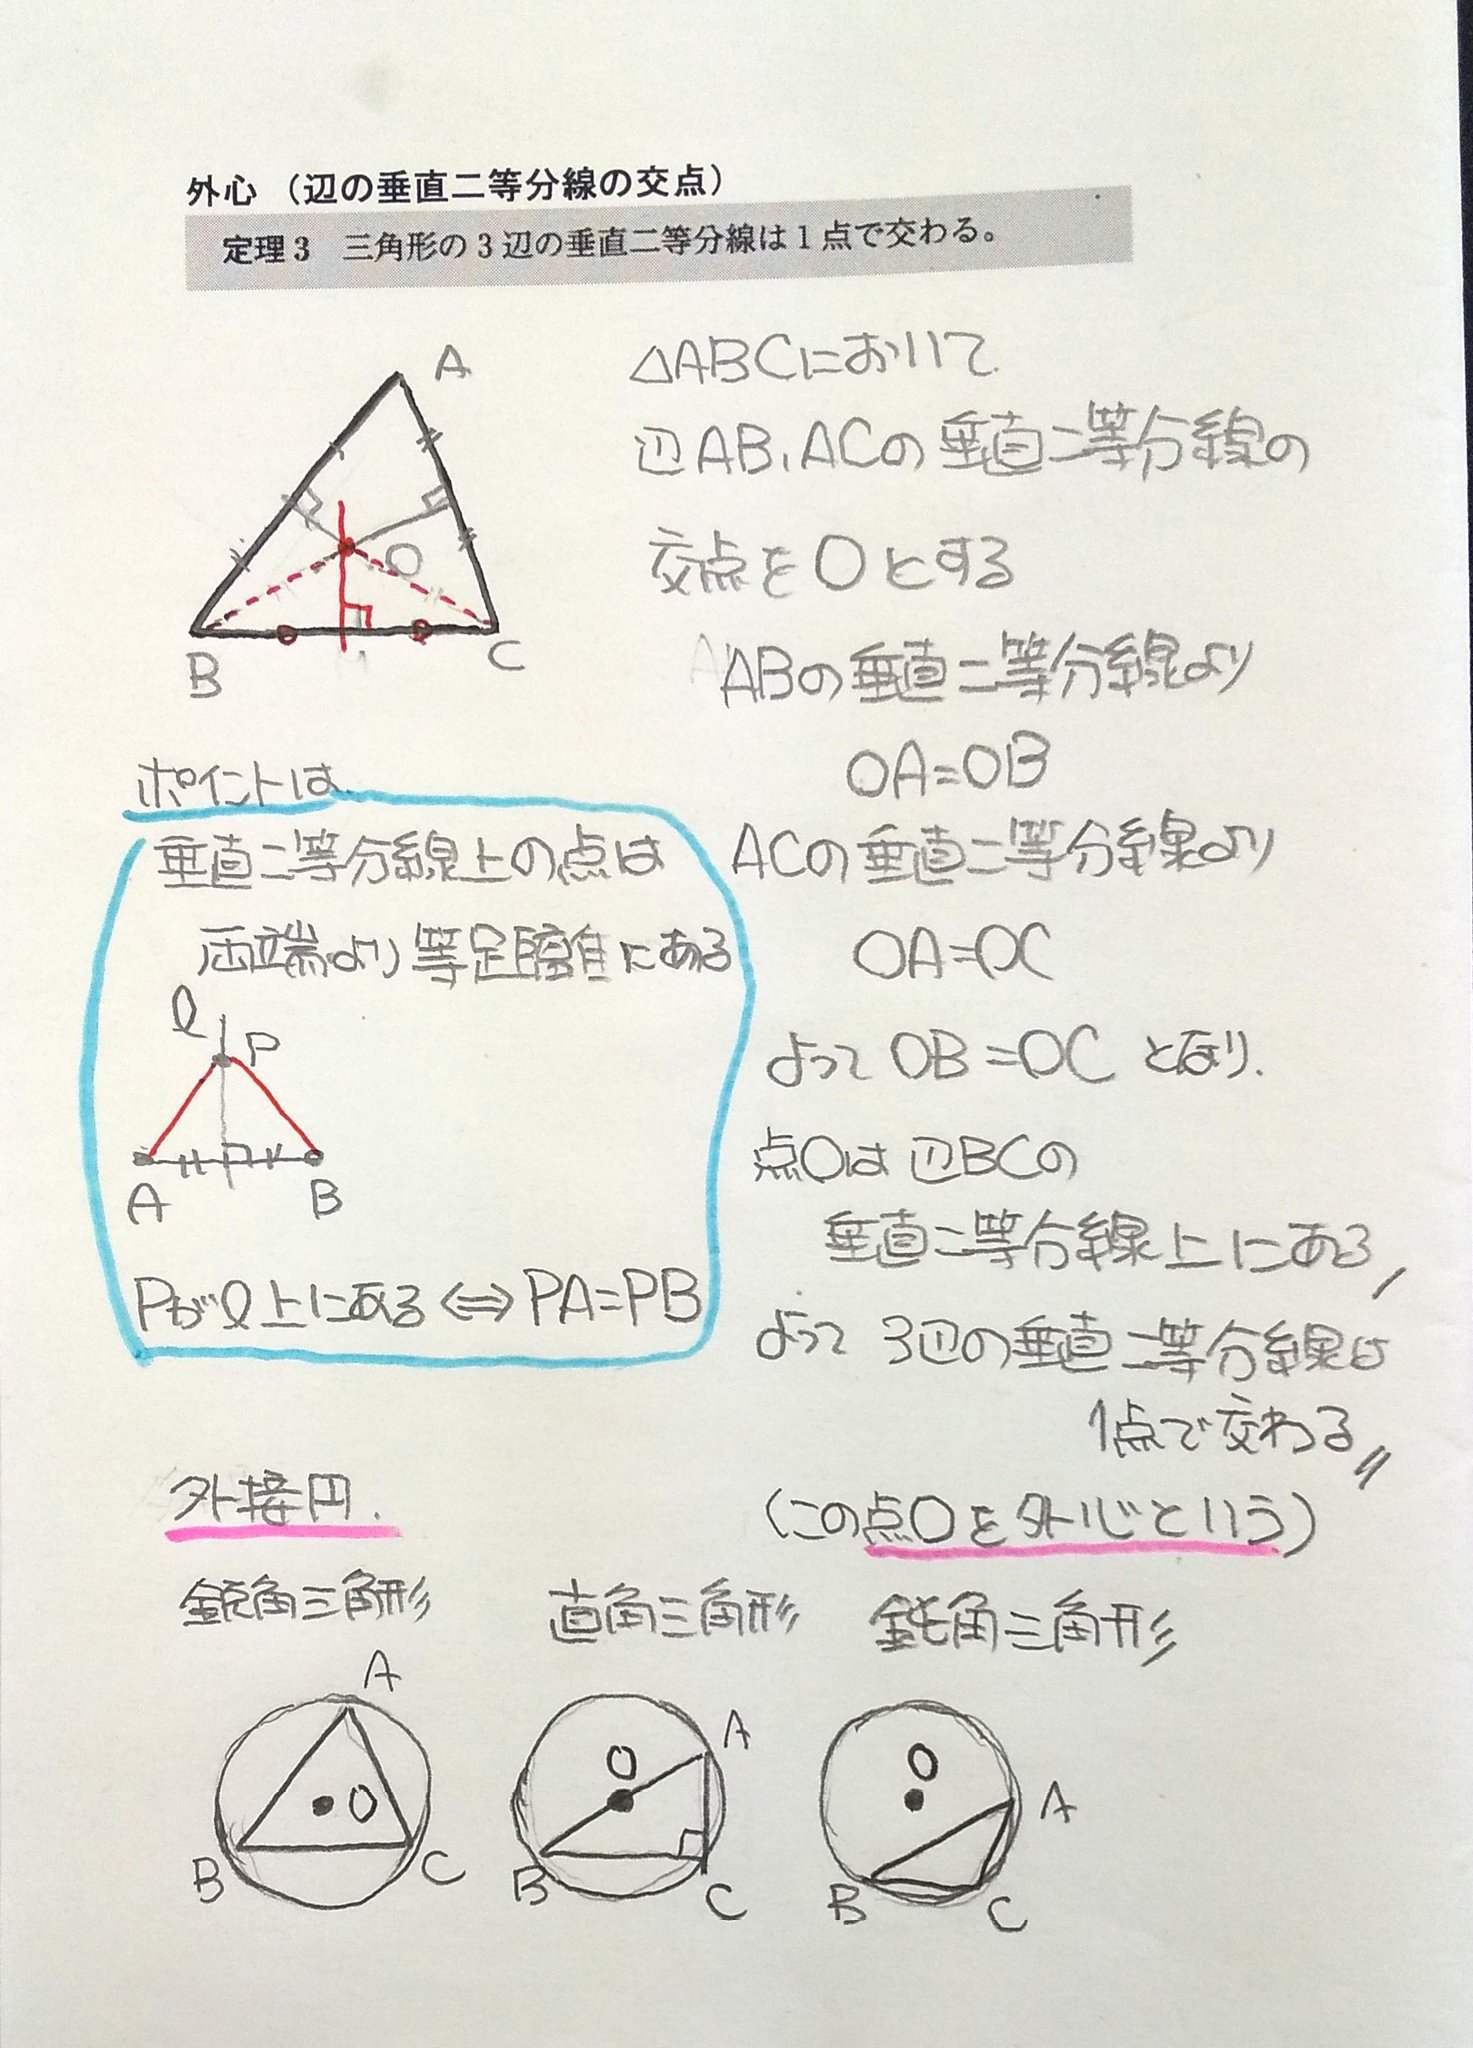 外心（辺の垂直二等分線の交点）
定理3 三角形の3辺の垂直二等分線は1点で交わる。
A
O
B
C
△ABCにおいて
辺AB,ACの垂直二等分線の
交点をOとする
ABの垂直二等分線より
OA=OB
ACの垂直二等分線より
OA=OC
よってOB=OCとなり.
点Oは辺BCの
垂直二等分線上にある,
よって3辺の垂直二等分線は
1点で交わる〃
(この点Oを外心という)
ポイントは
垂直二等分線上の点は
両端より等距離にある
l
P
A
B
Pがl上にある⇔PA=PB
外接円.
鋭角三角形
A
O
B
C
直角三角形
A
O
B
C
鈍角三角形
O
A
B
C